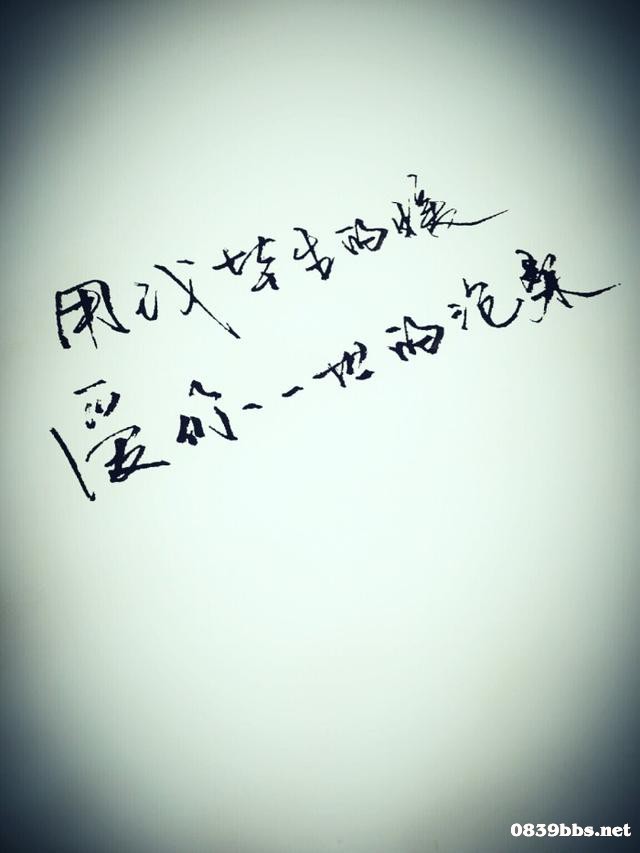 用我毕生的暖
爱你一世的沧桑
0839bbs.net